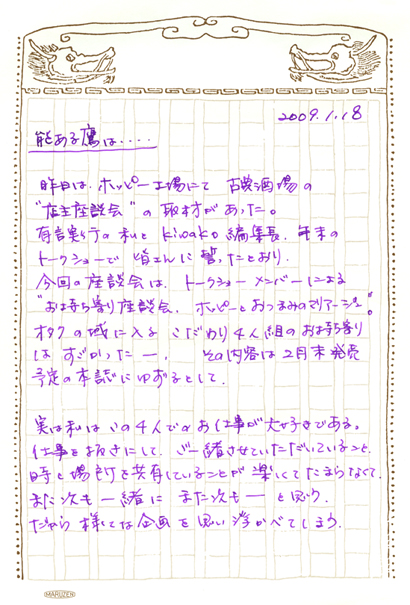 2009.1.18
能ある鷹は‥‥
昨日は、ホッピー工場にて 古酸酒場の
"店主座談会"の取材があった。
有言実行の私と kiwako編集長、年末の
トークショーで 皆さんに誓ったとおり。
今回の座談会は、トークショーメンバーによる
"お持ち寄り座談会、ホッピーとおつまみのマリアージュ"。
オタクの域に入る こだわり4人組のお持ち寄り
は すごかったー、 その内容は2月末発売
予定の本誌にゆずるとして、
実は私は この4人でのお仕事が大好きである。
仕事を抜きにして、ご一緒させていただいていること、
時と場所を共有していることが 楽しくてたまらなくて、
また次も一緒に また次もー と思う。
だから 様々な企画を思い浮かべてしまう。
MARUZEN